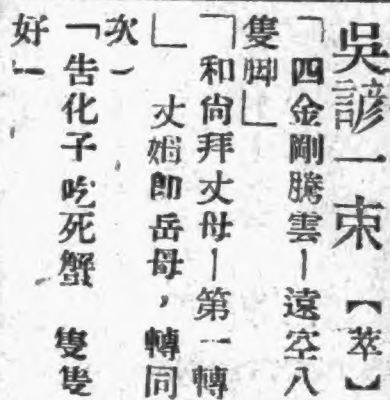 吳諺一束 【萃】
「四金剛騰雲—遠空八
隻脚」
「和尙拜丈母—第一轉
」 丈姆卽岳母，轉同
次）
「告化子吃死蟹 隻隻
好」